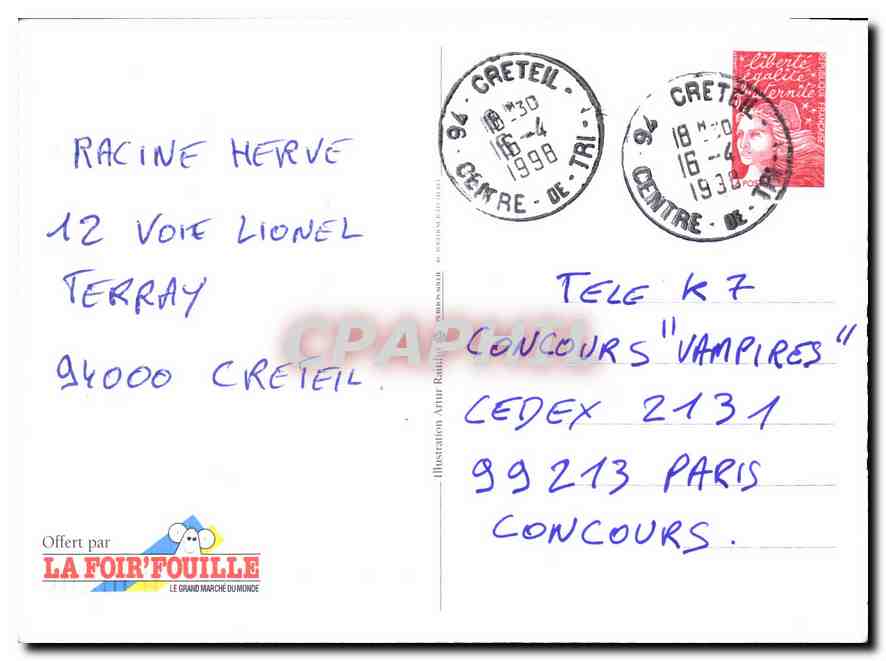 RACINE HERVE
12 VOIE LIONEL
TERRAY
94000 CRETEIL.
Offert par
LA FOIR'FOUILLE
LE GRAND MARCHÉ DU MONDE
Illustration Artur
CPAPHIL
94 - CRETEIL - 1
18 H30
16 -4
1998
CENTRE - DE - TRI
94 - CRETEIL - 1
18 H30
16 -4
1998
CENTRE - DE - TRI
liberté
égalité
fraternité
RÉPUBLIQUE FRANÇAISE
TELE K7
CONCOURS "VAMPIRES"
CEDEX 2131
99213 PARIS
CONCOURS.